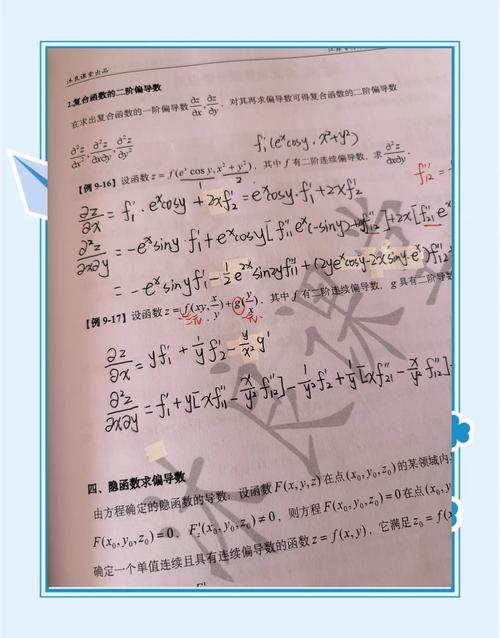 沐晨课堂出品
2.复合函数的二阶偏导数
在求出复合函数的一阶偏导数∂z/∂x, ∂z/∂y, 对其再求偏导数可得复合函数的二阶偏导数
∂²z/∂x², ∂²z/∂x∂y, ∂²z/∂y²
f₁'(eˣcosy, x²+y²)
【例 9-16】设函数 z = f(eˣ cos y, x² + y²), 其中 f 有二阶连续偏导数, 求 ∂²z/∂x∂y.
1 2
f₁₂'' =
∂z/∂x = f₁'·eˣcosy + 2xf₂' = eˣcosy·f₁' + 2xf₂'
∂²z/∂x∂y = -eˣsiny·f₁' + eˣcosy[f₁₁''eˣ(-siny)+2yf₁₂''] + 2x[f₂₁''eˣ
= -eˣsinyf₁' - 1/2e²ˣsin2yf₁₁'' + (2yeˣcosy-2xsiny·eˣ)f₁₂''
【例 9-17】设函数 z = f(xy, x/y) + g(y/x), 其中 f 有二阶连续偏导数, g 具有二阶导数
∂z/∂x = yf₁' + 1/y f₂' - y/x² g'
∂²z/∂x∂y = f₁' + y[xf₁₁'' - x/y² f₁₂''] - 1/y² f₂' + 1/y[xf₂₁'' - x/y² f₁₂'']-
四、隐函数求偏导数
由方程确定的隐函数的导数: 设函数 F(x,y,z) 在点(x₀,y₀,z₀)的某领域内
F(x₀,y₀,z₀)=0, F_z'(x₀,y₀,z₀)≠0, 则方程 F(x,y,z)=0 在点(x₀,y
确定一个单值连续且具有连续偏导数的函数 z = f(x,y), 它满足 z₀ = f(x